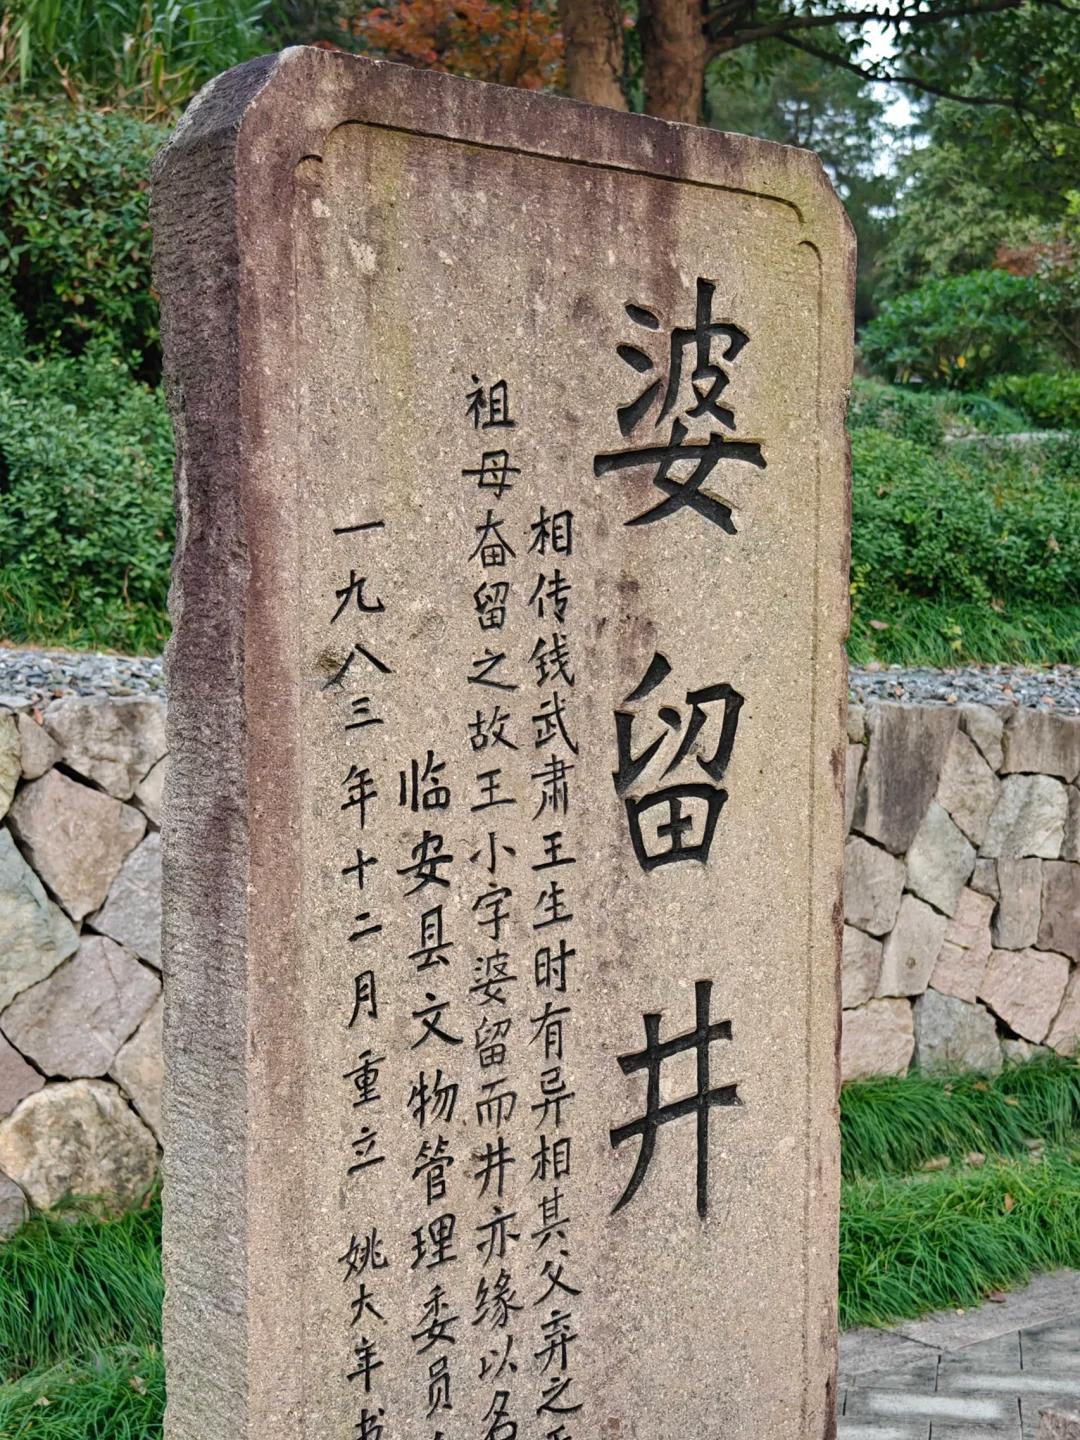 婆留井
相传钱武肃王生时有异相其父弃之
祖母奋留之故王小字婆留而井亦缘以名
临安县文物管理委员
一九八三年十二月重立 姚大年书